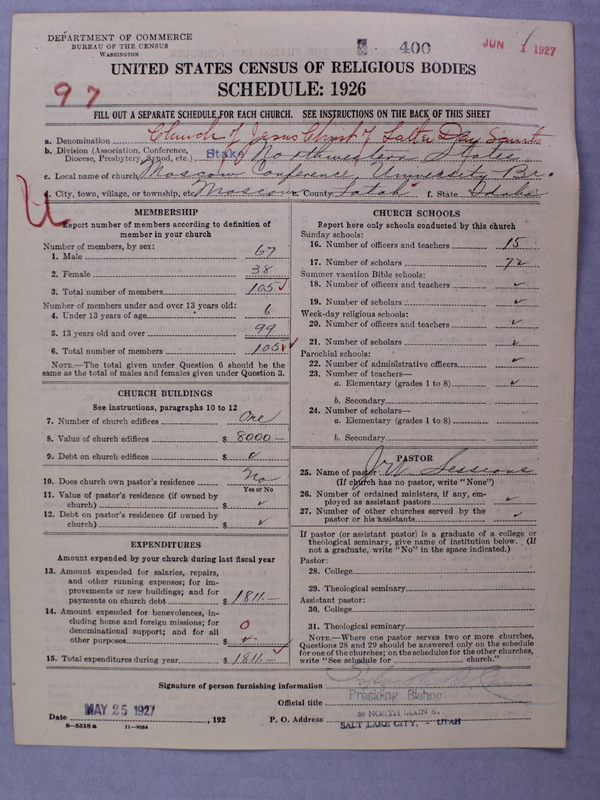 DEPARTMENT OF COMMERCE
BUREAU OF THE CENSUS
WASHINGTON
400
JUN 1 1927
UNITED STATES CENSUS OF RELIGIOUS BODIES
SCHEDULE: 1926
97
FILL OUT A SEPARATE SCHEDULE FOR EACH CHURCH. SEE INSTRUCTIONS ON THE BACK OF THIS SHEET
a. Denomination Church of Jesus Christ of Latter Day Saints
b. Division (Association, Conference, Diocese, Presbytery, Synod, etc.) Stake Northwestern States
c. Local name of church Moscow Conference, University Br.
d. City, town, village, or township, etc. Moscow e. County Latah f. State Idaho
MEMBERSHIP
Report number of members according to definition of
member in your church
Number of members, by sex:
1. Male 67
2. Female 38
3. Total number of members 105 ✓
Number of members under and over 13 years old:
4. Under 13 years of age 6
5. 13 years old and over 99
6. Total number of members 105 ✓✓
NOTE.—The total given under Question 6 should be the
same as the total of males and females given under Question 3.
CHURCH BUILDINGS
See instructions, paragraphs 10 to 12
7. Number of church edifices One
8. Value of church edifices $ 8000.—
9. Debt on church edifices $ ✓
10. Does church own pastor's residence No
Yes or No
11. Value of pastor's residence (if owned by
church) $ ✓
12. Debt on pastor's residence (if owned by
church) $ ✓
EXPENDITURES
Amount expended by your church during last fiscal year
13. Amount expended for salaries, repairs,
and other running expenses; for im-
provements or new buildings; and for
payments on church debt $ 1811.—
14. Amount expended for benevolences, in-
cluding home and foreign missions; for
denominational support; and for all 0
other purposes $ ✓
15. Total expenditures during year $ 1811.— ✓
CHURCH SCHOOLS
Report here only schools conducted by this church
Sunday schools:
16. Number of officers and teachers 15
17. Number of scholars 72
Summer vacation Bible schools:
18. Number of officers and teachers ✓
19. Number of scholars ✓
Week-day religious schools:
20. Number of officers and teachers ✓
21. Number of scholars ✓
Parochial schools:
22. Number of administrative officers ✓
23. Number of teachers—
a. Elementary (grades 1 to 8) ✓
b. Secondary
24. Number of scholars—
a. Elementary (grades 1 to 8)
b. Secondary
PASTOR
25. Name of pastor J W Sessions
(If church has no pastor, write "None")
26. Number of ordained ministers, if any, em-
ployed as assistant pastors ✓
27. Number of other churches served by the
pastor or his assistants ✓
If pastor (or assistant pastor) is a graduate of a college or
theological seminary, give name of institution below. (If
not a graduate, write "No" in the space indicated.)
Pastor:
28. College
29. Theological seminary
Assistant pastor:
30. College
31. Theological seminary
NOTE.—Where one pastor serves two or more churches,
Questions 28 and 29 should be answered only on the schedule
for one of the churches; on the schedules for the other churches,
write "See schedule for church."
Signature of person furnishing information
Official title Presiding Bishop
Date MAY 25 1927, 192 P. O. Address 40 NORTH MAIN S.
SALT LAKE CITY, UTAH
8—5518 a 11—9084